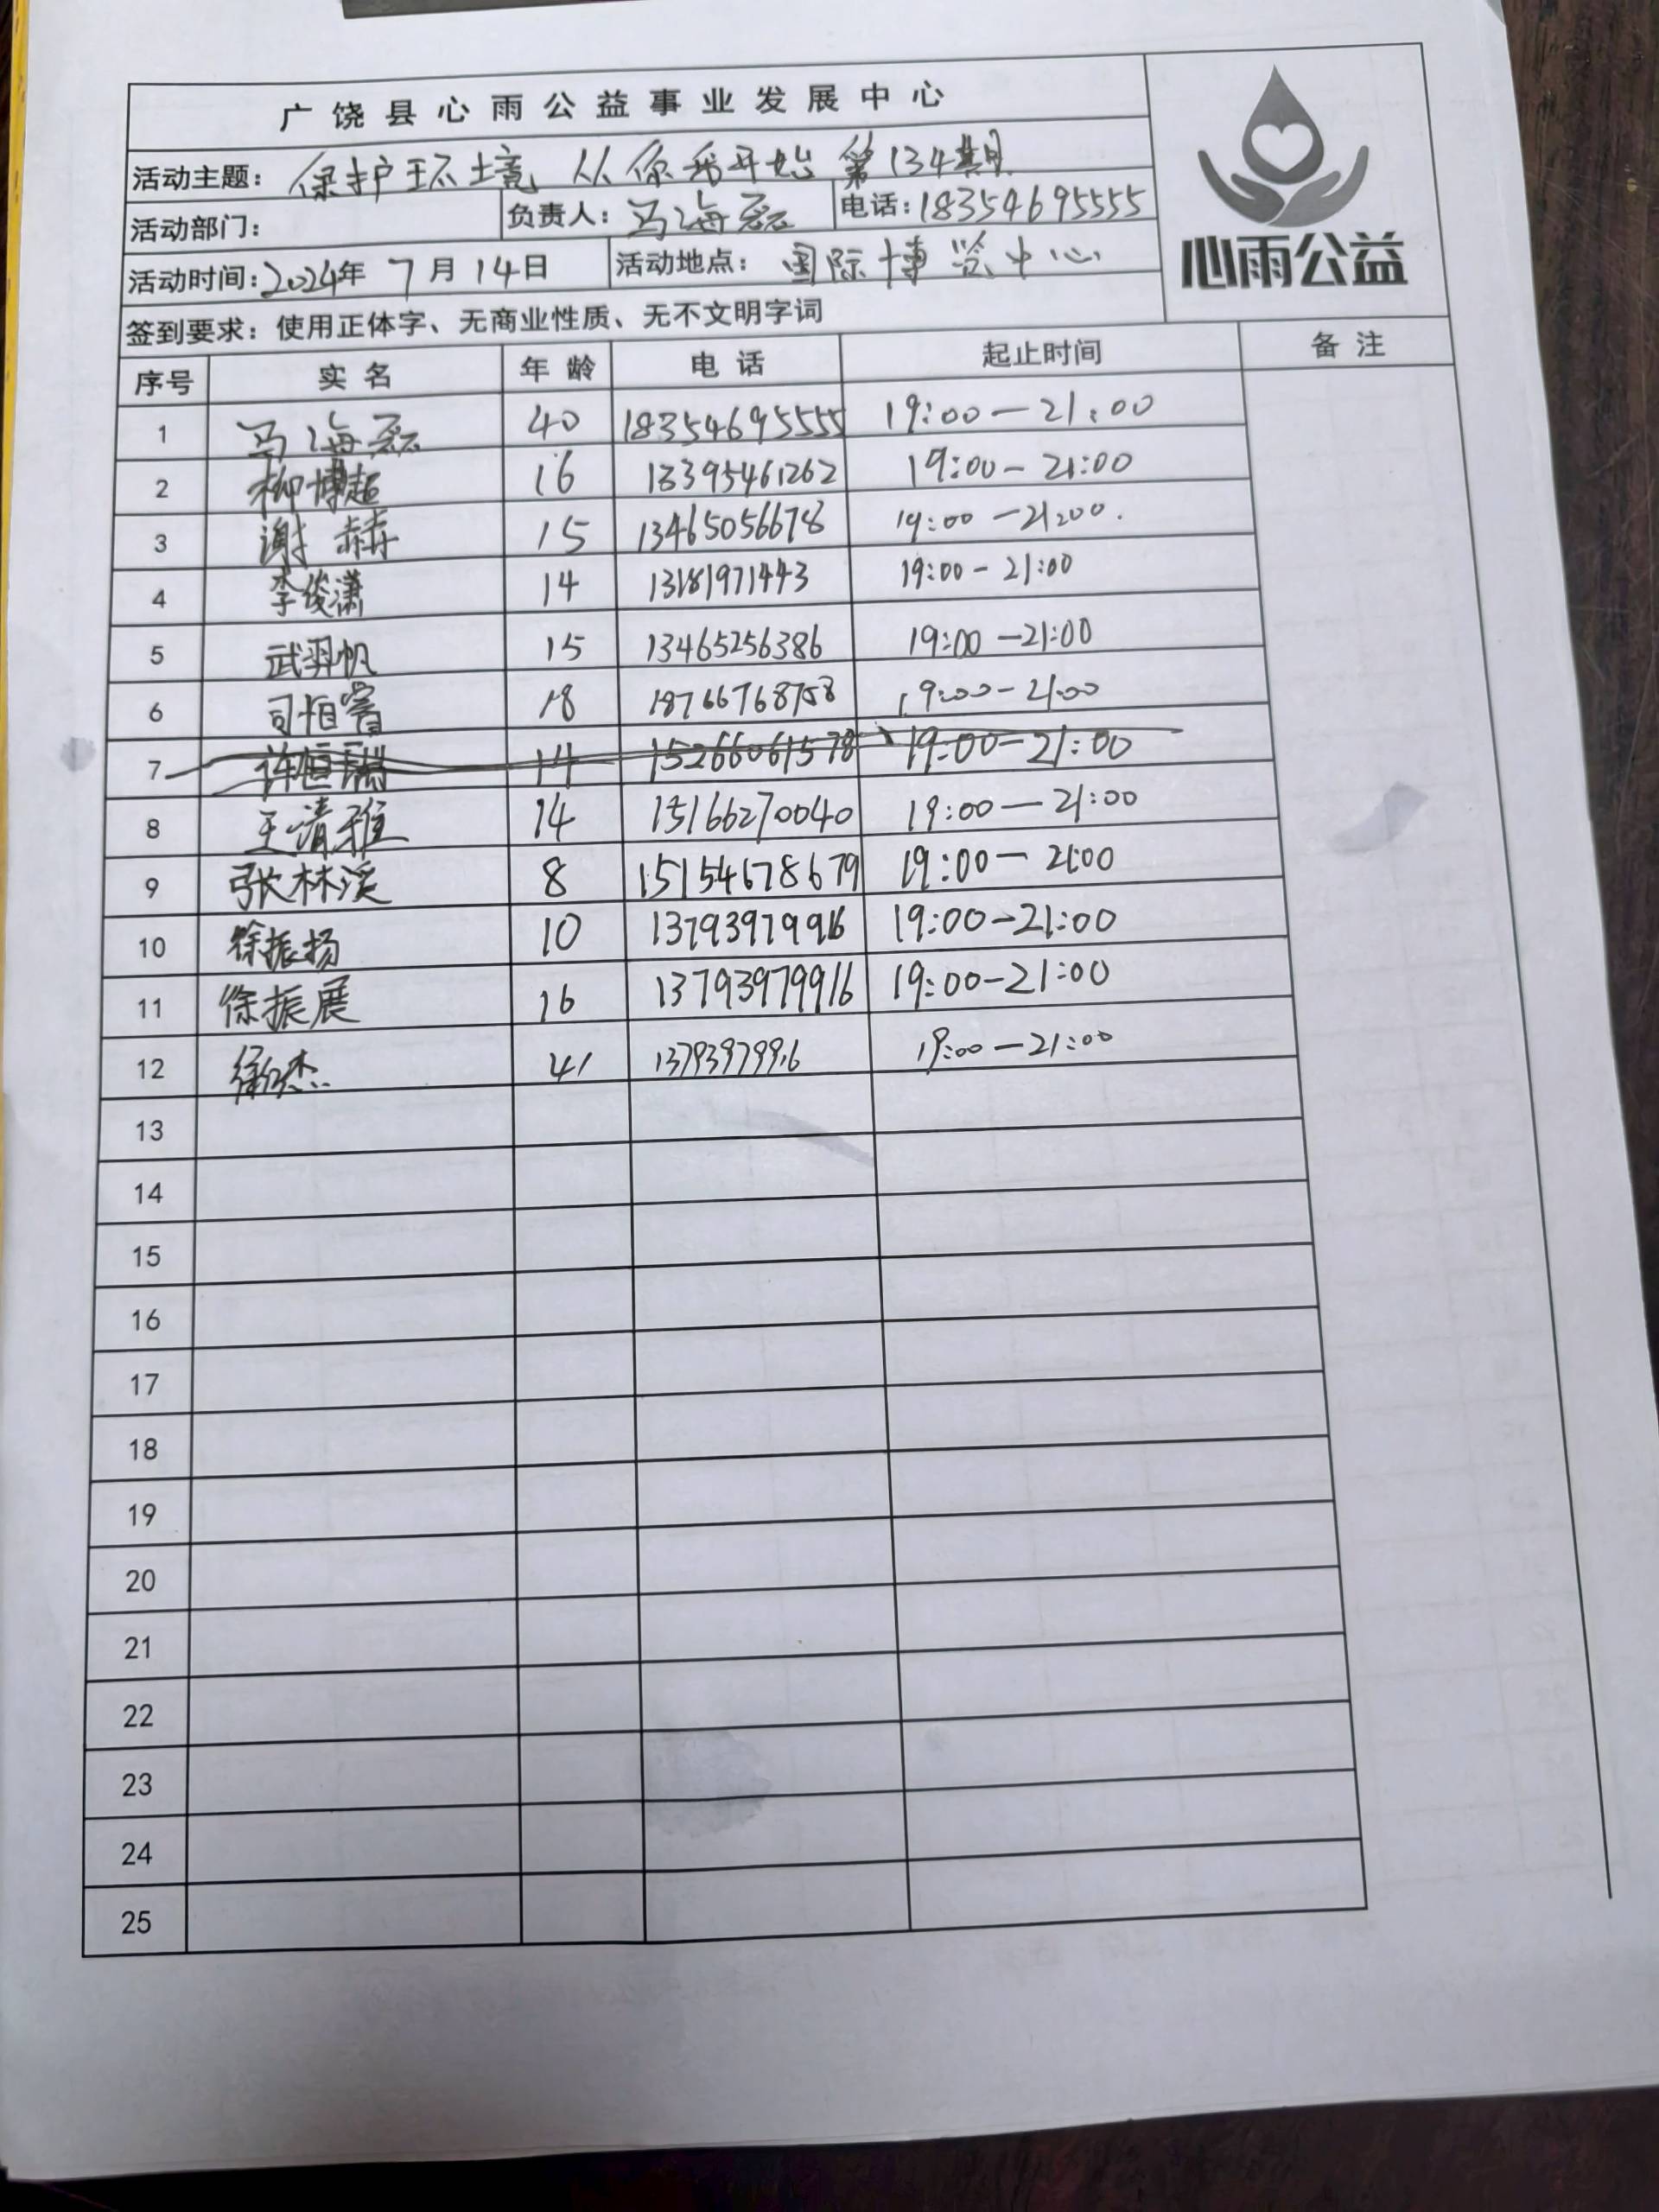 广饶县心雨公益事业发展中心
活动主题：保护环境 从你我开始 第134期
活动部门： 负责人：马海磊 电话：18354695555
活动时间：2024年 7月14日 活动地点：国际博览中心
心雨公益
签到要求：使用正体字、无商业性质、无不文明字词
序号 实名 年龄 电话 起止时间 备注
1 马海磊 40 18354695555 19:00—21:00
2 柳博超 16 13395461262 19:00-21:00
3 谢赫 15 13465056678 19:00-21:00.
4 李俊潇 14 13181971443 19:00-21:00
5 武羿帆 15 13465256386 19:00-21:00
6 司恒睿 18 18766768758 19:00-21:00
7 许恒瑞 14 15266061578 19:00-21:00
8 王清雅 14 15166270040 19:00—21:00
9 张林溪 8 15154678679 19:00-21:00
10 徐振扬 10 13793979916 19:00-21:00
11 徐振展 16 13793979916 19:00-21:00
12 徐杰 41 13793979916 19:00-21:00
13
14
15
16
17
18
19
20
21
22
23
24
25